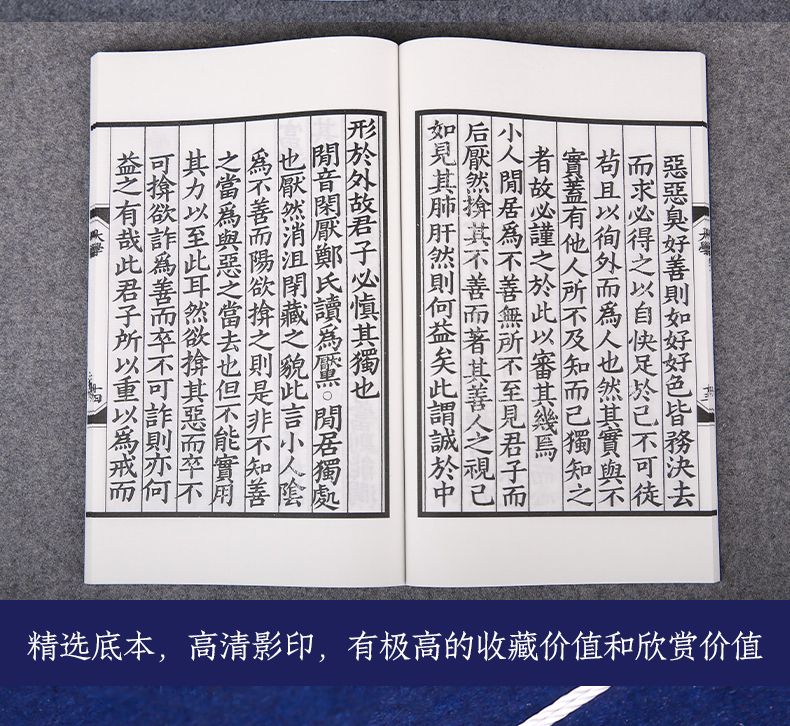 惡惡臭好善則如好好色皆務決去
而求必得之以自快足於己不可徒
苟且以徇外而為人也然其實與不
實蓋有他人所不及知而己獨知之
者故必謹之於此以審其幾焉
小人閒居為不善無所不至見君子而
后厭然揜其不善而著其善人之視己
如見其肺肝然則何益矣此謂誠於中
形於外故君子必慎其獨也
閒音閑厭鄭氏讀為黶○閒居獨處
也厭然消沮閉藏之貌此言小人陰
為不善而陽欲揜之則是非不知善
之當為與惡之當去也但不能實用
其力以至此耳然欲揜其惡而卒不
可揜欲詐為善而卒不可詐則亦何
益之有哉此君子所以重以為戒而
精选底本，高清影印，有极高的收藏价值和欣赏价值